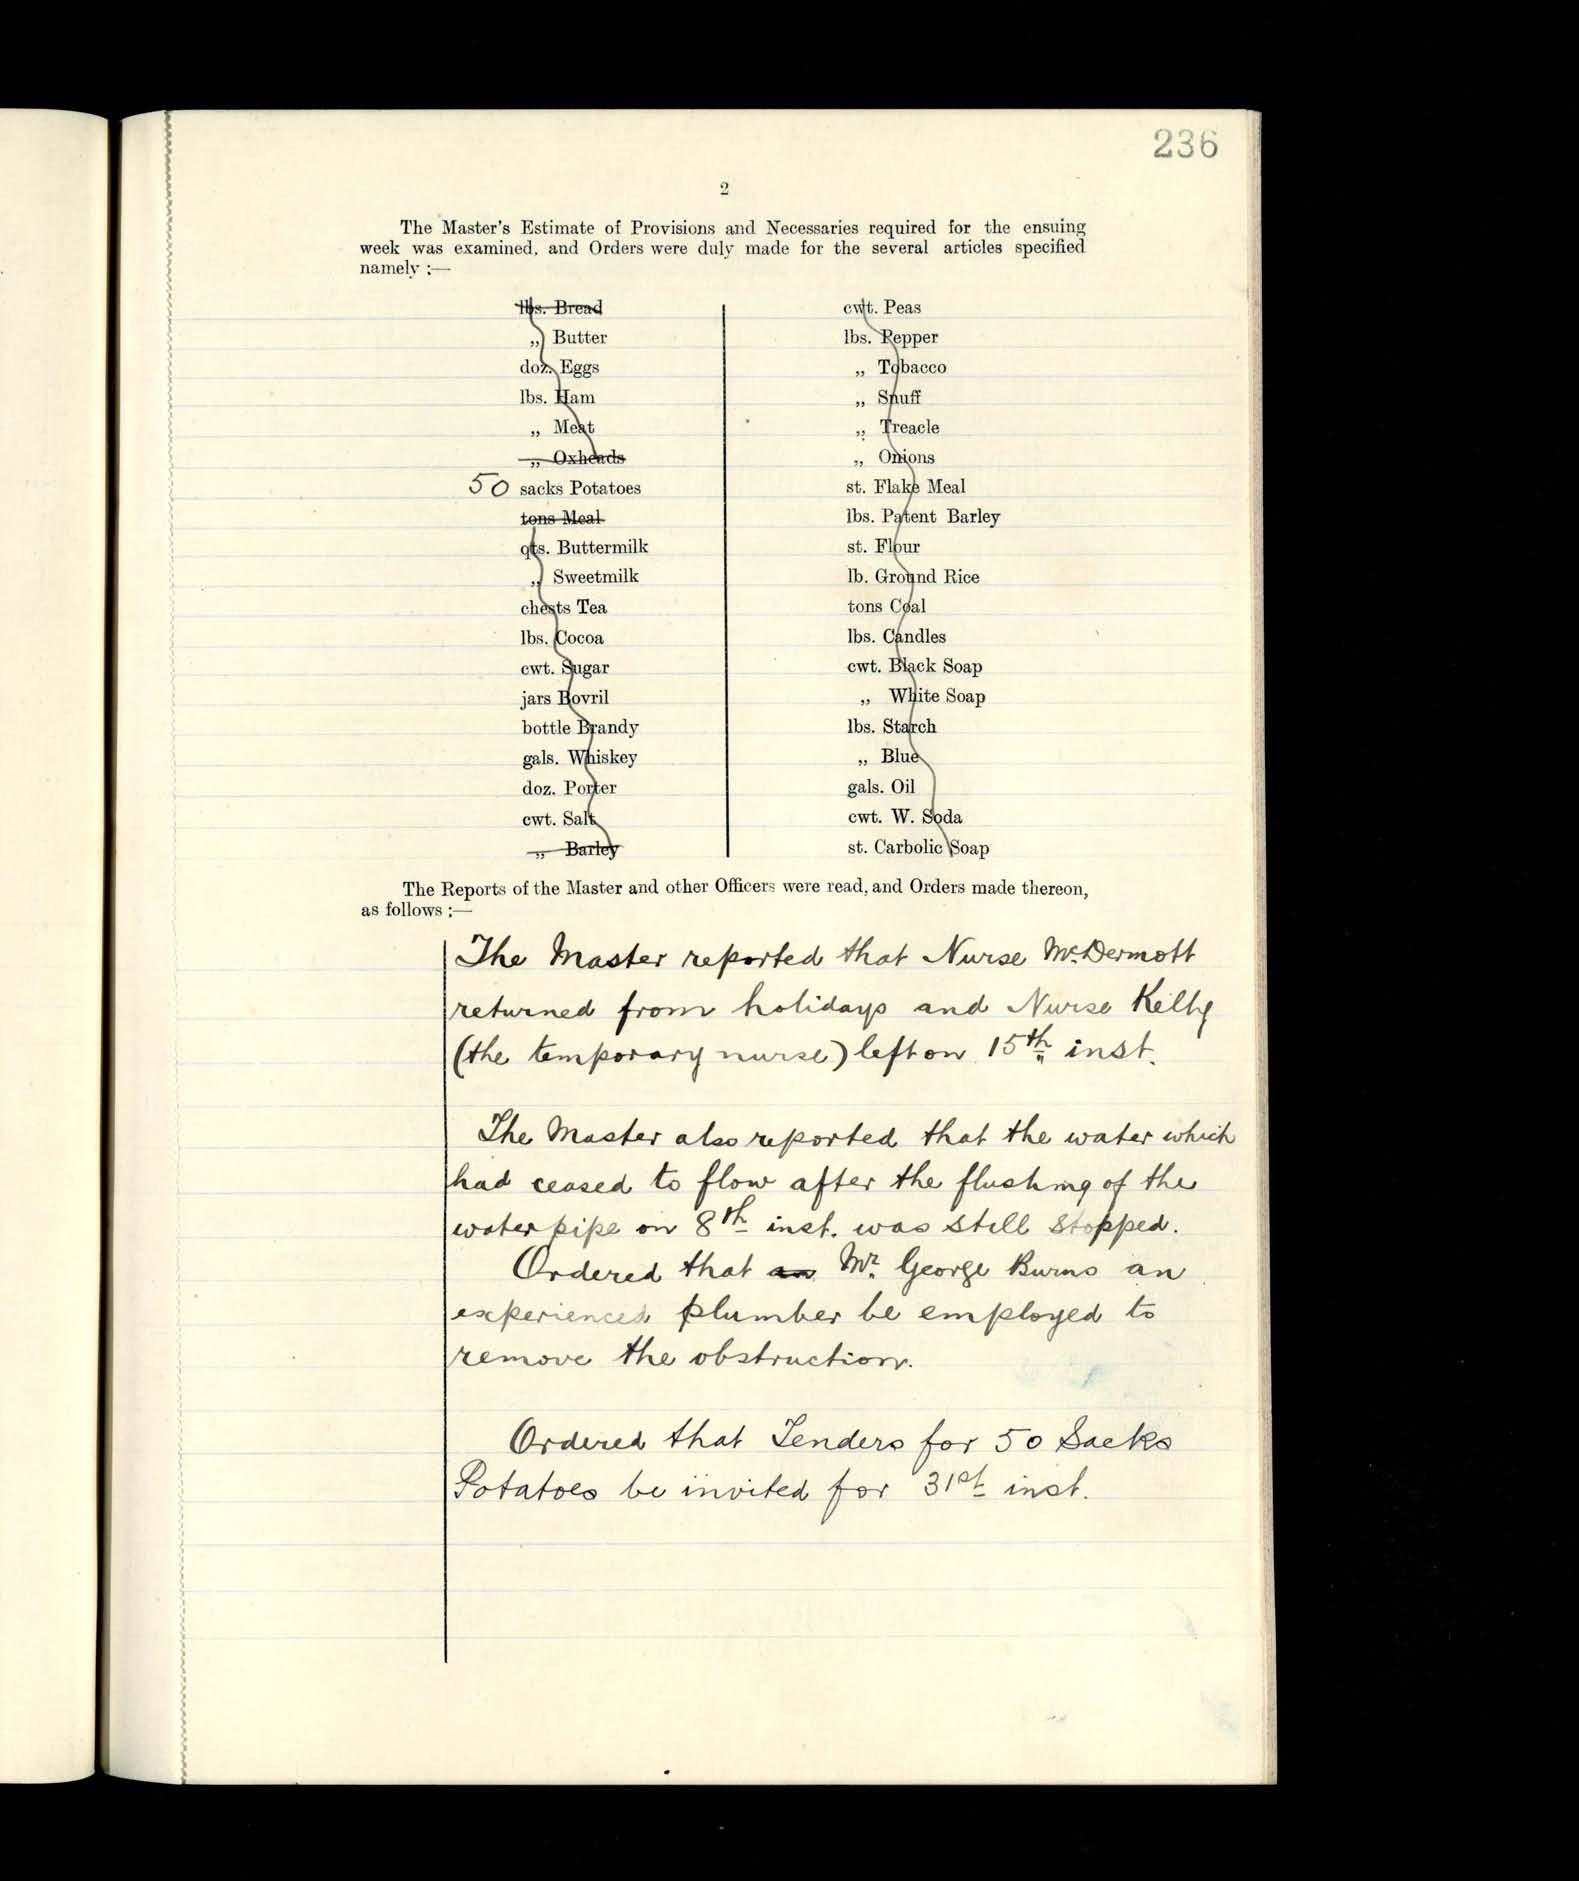 236
2
The Master's Estimate of Provisions and Necessaries required for the ensuing
week was examined, and Orders were duly made for the several articles specified
namely :—
lbs. Bread
„ Butter
doz. Eggs
lbs. Ham
„ Meat
„ Oxheads
50 sacks Potatoes
tons Meal
qts. Buttermilk
„ Sweetmilk
chests Tea
lbs. Cocoa
cwt. Sugar
jars Bovril
bottle Brandy
gals. Whiskey
doz. Porter
cwt. Salt
„ Barley
cwt. Peas
lbs. Pepper
„ Tobacco
„ Snuff
„ Treacle
„ Onions
st. Flake Meal
lbs. Patent Barley
st. Flour
lb. Ground Rice
tons Coal
lbs. Candles
cwt. Black Soap
„ White Soap
lbs. Starch
„ Blue
gals. Oil
cwt. W. Soda
st. Carbolic Soap
The Reports of the Master and other Officers were read, and Orders made thereon,
as follows :—
The Master reported that Nurse McDermott
returned from holidays and Nurse Kelly
(the temporary nurse) left on 15th inst.
The Master also reported that the water which
had ceased to flow after the flushing of the
water pipe on 8th inst. was still stopped.
Ordered that an Mr. George Burns an
experienced plumber be employed to
remove the obstruction.
Ordered that Tenders for 50 Sacks
Potatoes be invited for 31st inst.